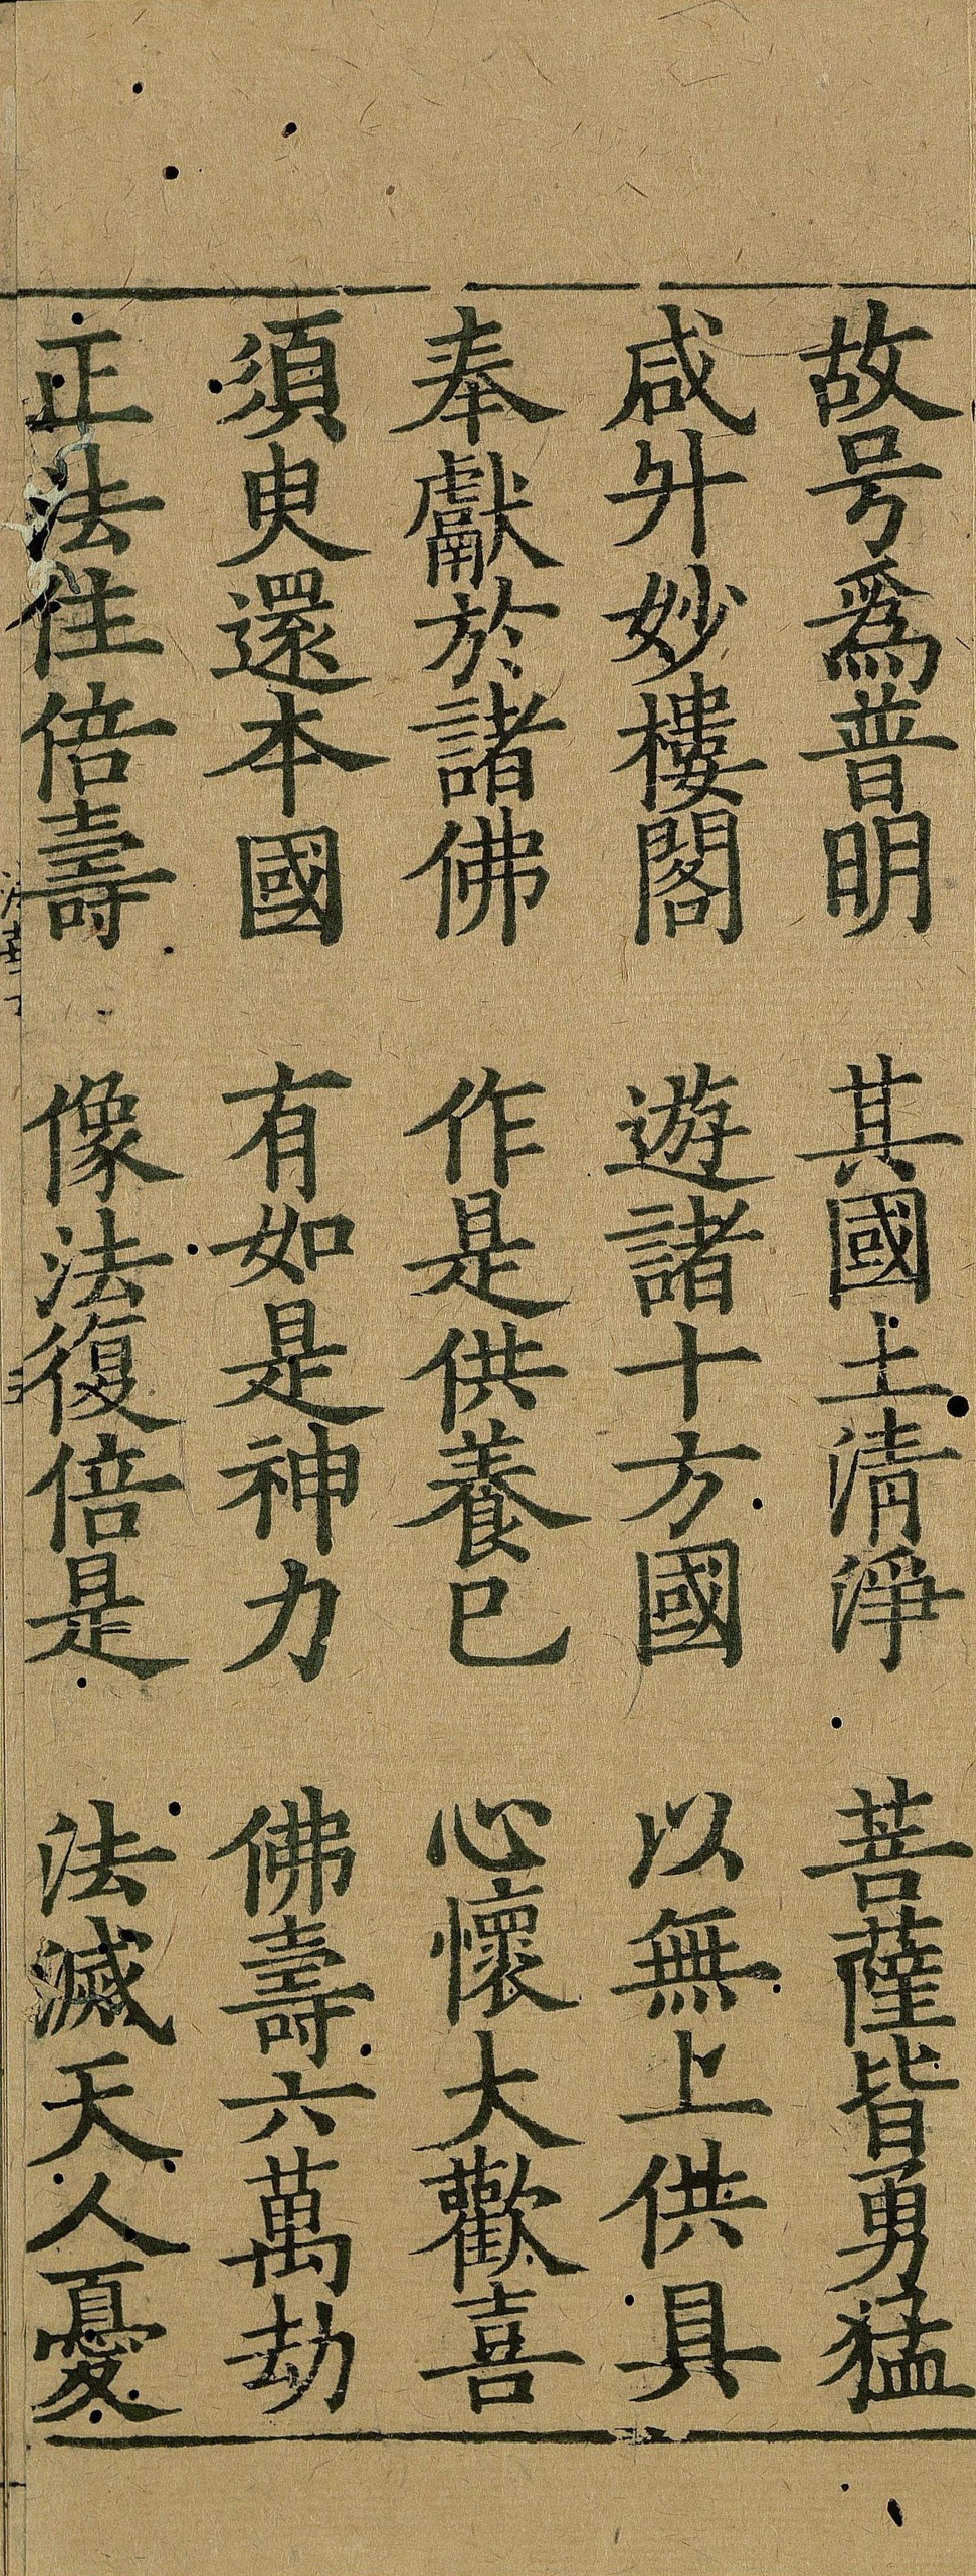 故号爲普明　其國土清淨　菩薩皆勇猛
咸升妙樓閣　遊諸十方國　以無上供具
奉獻於諸佛　作是供養已　心懷大歡喜
須臾還本國　有如是神力　佛壽六萬劫
正法住倍壽　像法復倍是　法滅天人憂